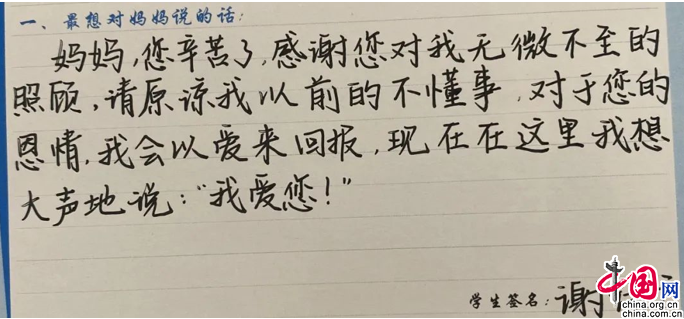 一、最想对妈妈说的话:
妈妈,您辛苦了,感谢您对我无微不至的
照顾,请原谅我以前的不懂事,对于您的
恩情,我会以爱来回报,现在在这里我想
大声地说:“我爱您!”
学生签名:谢
中国网
china.org.cn
china.com.cn